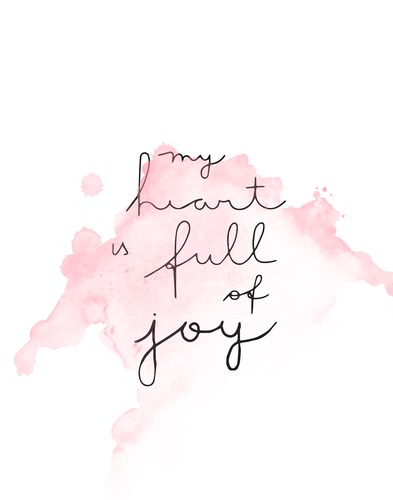 my
heart
is full
of
joy